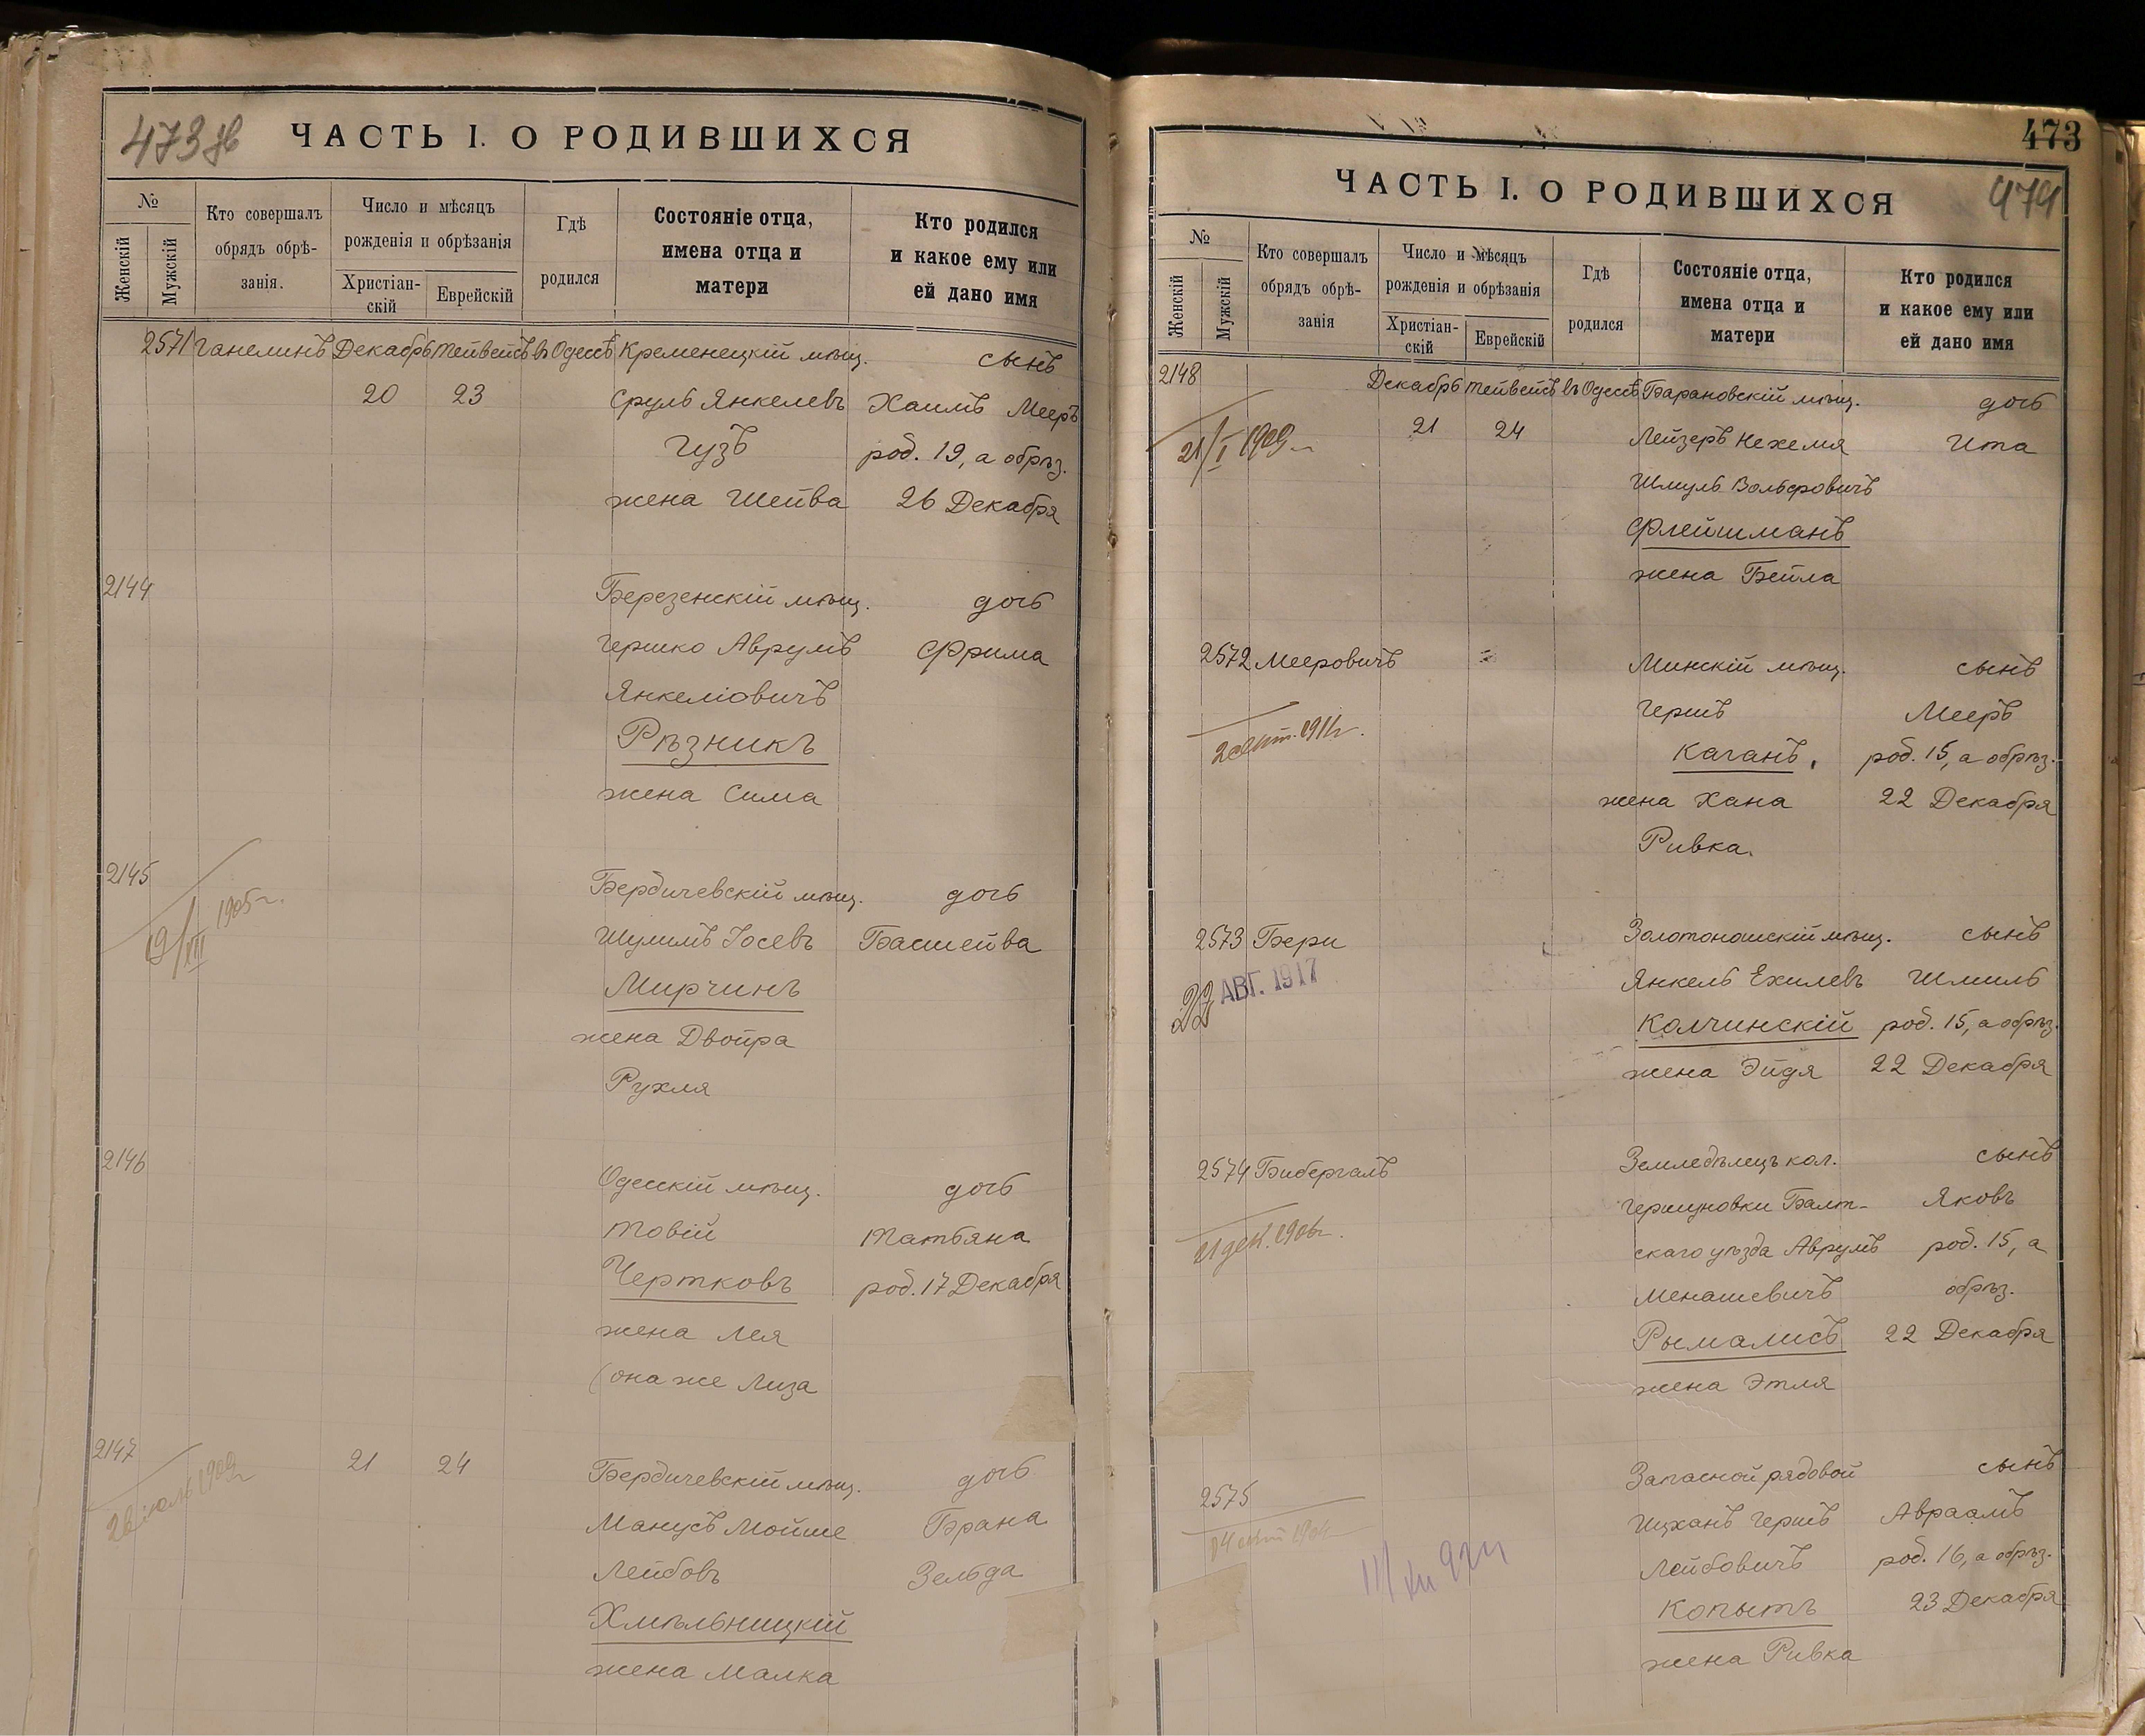 473 об
ЧАСТЬ I. О РОДИВШИХСЯ
№
Женскій
Мужскій
Кто совершалъ
обрядъ обрѣ-
занія.
Число и мѣсяцъ
рожденія и обрѣзанія
Христіан-
скій
Еврейскій
Гдѣ
родился
Состояніе отца,
имена отца и
матери
Кто родился
и какое ему или
ей дано имя
2571 Ганелинъ Декабрь Тейвейсъ въ Одессѣ Кременецкій мѣщ. сынъ
20 23 Сруль Янкелевъ Хаимъ Мееръ
Гузъ род. 19, а обрѣз.
жена Шейва 26 Декабря
2144 Березенскій мѣщ. дочь
Гершко Аврумъ Фрима
Янкеліовичъ
Рѣзникъ
жена Сима
2145 Бердичевскій мѣщ. дочь
19/VII 1905 г.
Шулимъ Іосевъ Басшейва
Мирчинъ
жена Двойра
Рухля
2146 Одесскій мѣщ. дочь
Товій Татьяна
Чертковъ род. 17 Декабря
жена Лея
(она же Лиза
2147 21 24 Бердичевскій мѣщ. дочь
26 іюль 1909 г.
Манусъ Мойше Брана
Лейбовъ Зельда
Хмѣльницкій
жена Малка
473
474
ЧАСТЬ I. О РОДИВШИХСЯ
№
Женскій
Мужскій
Кто совершалъ
обрядъ обрѣ-
занія
Число и мѣсяцъ
рожденія и обрѣзанія
Христіан-
скій
Еврейскій
Гдѣ
родился
Состояніе отца,
имена отца и
матери
Кто родился
и какое ему или
ей дано имя
2148 Декабрь Тейвейсъ въ Одессѣ Барановскій мѣщ. дочь
21/I 1909 г. 21 24 Лейзеръ Нехемя Ита
Шмуль Вольфовичъ
Флейшманъ
жена Бейла
2572 Мееровичъ Минскій мѣщ. сынъ
Гершъ Мееръ
1911 г.
Каганъ, род. 15, а обрѣз.
жена Хана 22 Декабря
Ривка.
2573 Бери Золотоношскій мѣщ. сынъ
22 АВГ. 1917
Янкель Ехилевъ Шмиль
Колчинскій род. 15, а обрѣз.
жена Эйдя 22 Декабря
2574 Бибергалъ Земледѣлецъ кол. сынъ
Гершуновки Балт- Яковъ
21 дек. 1906 г.
скаго уѣзда Аврумъ род. 15, а
Менашевичъ обрѣз.
Рымалисъ 22 Декабря
жена Этля
2575 Запасной рядовой сынъ
Ицханъ Гершъ Авраамъ
Лейбовичъ род. 16, а обрѣз.
Копытъ 23 Декабря
жена Ривка